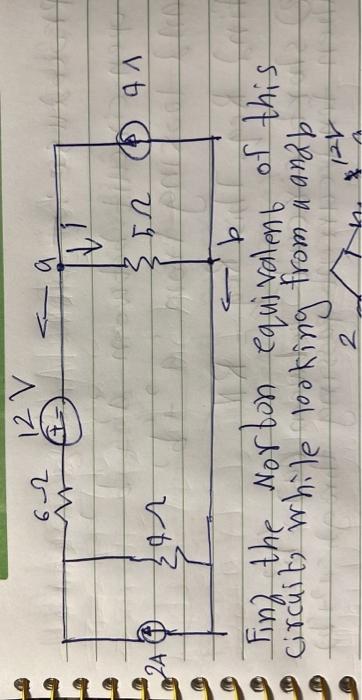 12 V
6Ω
a
i
2A
4Ω
5Ω
4 A
b
Find the Norton equivalent of this
circuit, while looking from a and b
12V
2